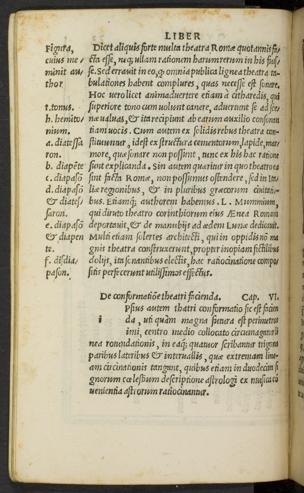 LIBER
Figura,
cuius me
minit au
thor
t. tonus.
h. hemito
nium.
a. diatessa
ron.
b. diapẽte
c. diapasõ
d. diapasõ
& diates
saron.
e. diapasõ
& diapen
te
f. disdia
pason.
Dicet aliquis forte multa theatra Romæ quotannis fa-
cta esse, neq; ullam rationem harum rerum in his fuis
se. Sed errauit in eo, q omnia publica lignea theatra ta-
bulationes habent complures, quas necesse est sonare.
Hoc uero licet animaduertere etiam à citharedis, qui
superiore tono cum uolunt canere, aduertunt se ad sce-
næ ualuas, & ita recipiunt ab earum auxilio consonan
tiam uocis. Cum autem ex solidis rebus theatra con-
stituuntur, idest ex structura cementorum, lapide, mar-
more, quæ sonare non possunt, tunc ex his hac ratione
sunt explicanda. Sin autem quæritur in quo theatro ea
sint facta Romæ, non possumus ostendere, sed in Ita-
liæ regionibus, & in pluribus græcorum ciuitati-
bus. Etiamq; authorem habemus. L. Mummium,
qui diruto theatro corinthiorum eius Ænea Romam
deportauit, & de manubijs ad ædem Lunæ dedicauit.
Multi etiam solertes architecti, qui in oppidis nõ ma
gnis theatra construxerunt, propter inopiam fictilibus
dolijs, ita sonantibus electis, hac ratiocinatione compo
sitis perfecerunt utilissimos effectus.
De conformatiõe theatri facienda. Cap. VI.
i Psius autem theatri conformatio sic est facien
da, uti quàm magna futura est perimetros
imi, centro medio collocato circumagatur li
nea rotundationis, in eaq; quatuor scribantur trigona
paribus lateribus & interuallis, quæ extremam line-
am circinationis tangant, quibus etiam in duodecim si
gnorum cælestium descriptione astrologi ex musica cõ
uenientia astrorum ratiocinantur.